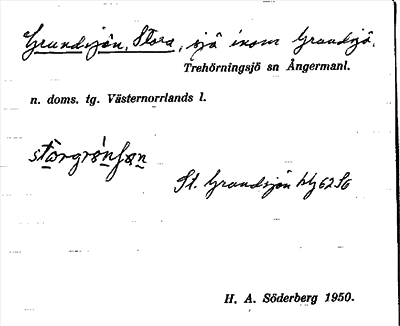 Grundsjön, Stora, sjö inom Grundsjö,
Trehörningsjö sn Ångermanl.
n. doms. tg. Västernorrlands l.
stòrgrónʃɷn
St. Grundsjön hlg 62 S6
H. A. Söderberg 1950.